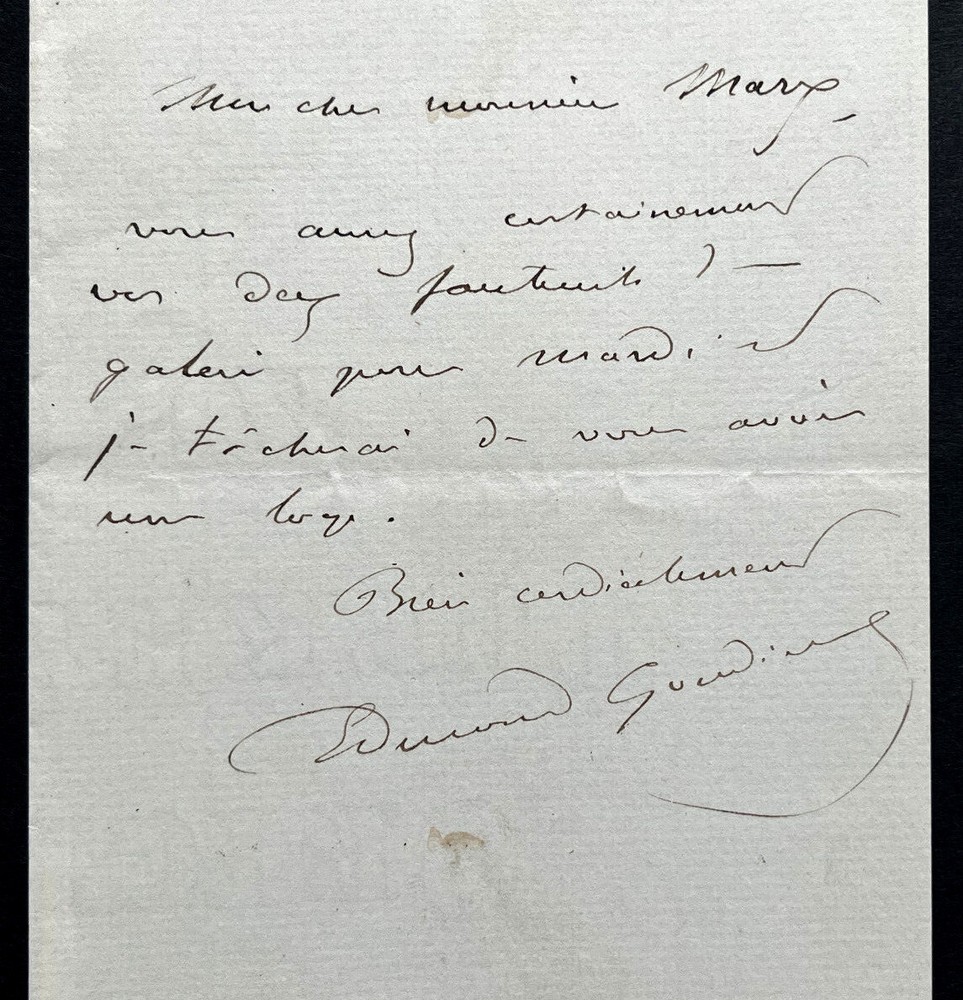 Mon cher monsieur Marx,
vous aurez certainement
vos deux fauteuils de
galerie pour mardi et
je tâcherai de vous avoir
une loge.
Bien cordialement
Edmond Gondinet